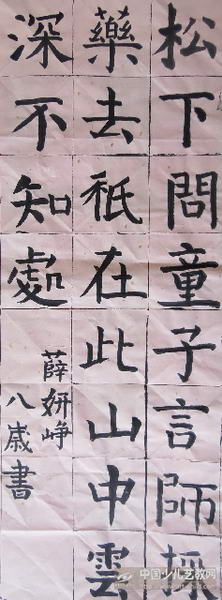 松下問童子言師採
藥去祇在此山中雲
深不知處
薛妍峥
八歳書
中国少儿艺教网